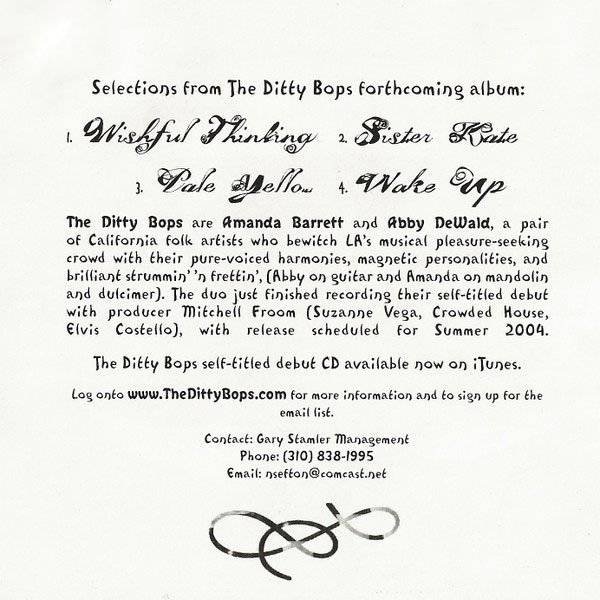 Selections from The Ditty Bops forthcoming album:
1. Wishful Thinking 2. Sister Kate
3. Pale Yellow 4. Wake Up
The Ditty Bops are Amanda Barrett and Abby DeWald, a pair
of California folk artists who bewitch LA's musical pleasure-seeking
crowd with their pure-voiced harmonies, magnetic personalities, and
brilliant strummin' 'n frettin', (Abby on guitar and Amanda on mandolin
and dulcimer). The duo just finished recording their self-titled debut
with producer Mitchell Froom (Suzanne Vega, Crowded House,
Elvis Costello), with release scheduled for Summer 2004.
The Ditty Bops self-titled debut CD available now on iTunes.
Log onto www.TheDittyBops.com for more information and to sign up for the
email list.
Contact: Gary Stamler Management
Phone: (310) 838-1995
Email: nsefton@comcast.net